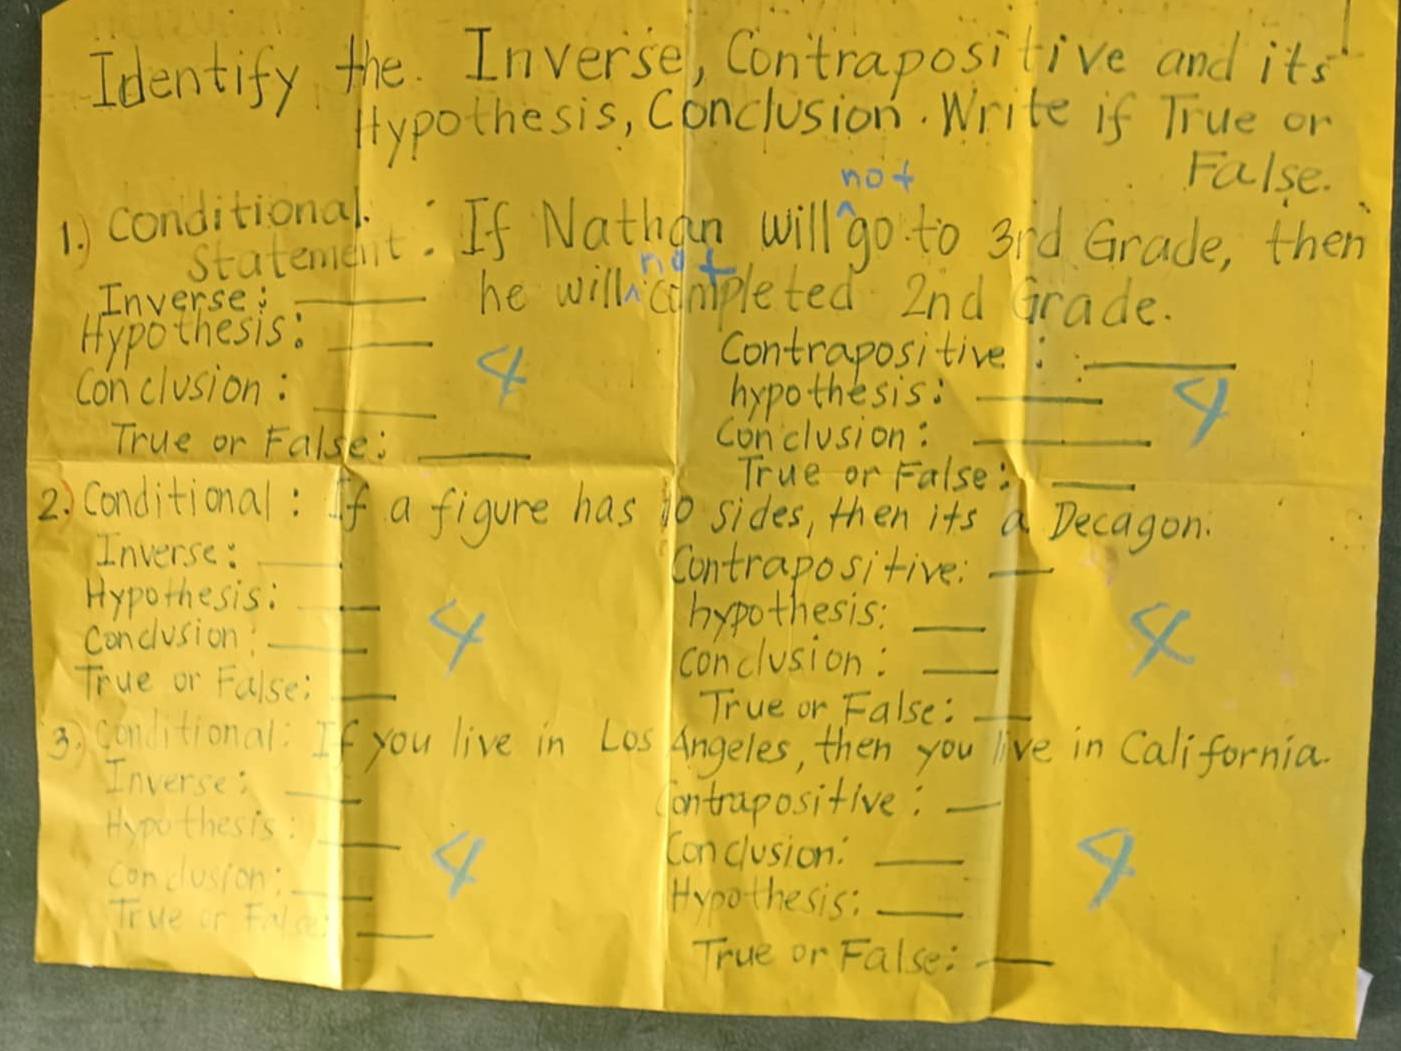 Identify the Inverse, Contrapositive and its
Hypothesis, Conclusion. Write if True or
False.
not
1.) Conditional : If Nathan will ^ go to 3rd Grade, then
Statement.
not
Inverse: ____ he will ^ completed 2nd Grade.
Hypothesis: ____
Conclusion: ____ 4
True or False: ____
Contrapositive: ____
hypothesis: ____ 4
Conclusion: ____
True or False: ____
2.) Conditional: If a figure has 10 sides, then its a Decagon.
Inverse: ____
Hypothesis: ____
Conclusion: ____ 4
True or False: ____
Contrapositive: ____
hypothesis: ____ 4
Conclusion: ____
True or False: ____
3.) Conditional: If you live in Los Angeles, then you live in California.
Inverse: ____
Hypothesis: ____
Conclusion: ____ 4
True or False: ____
Contrapositive: ____
Conclusion: ____ 4
Hypothesis: ____
True or False: ____